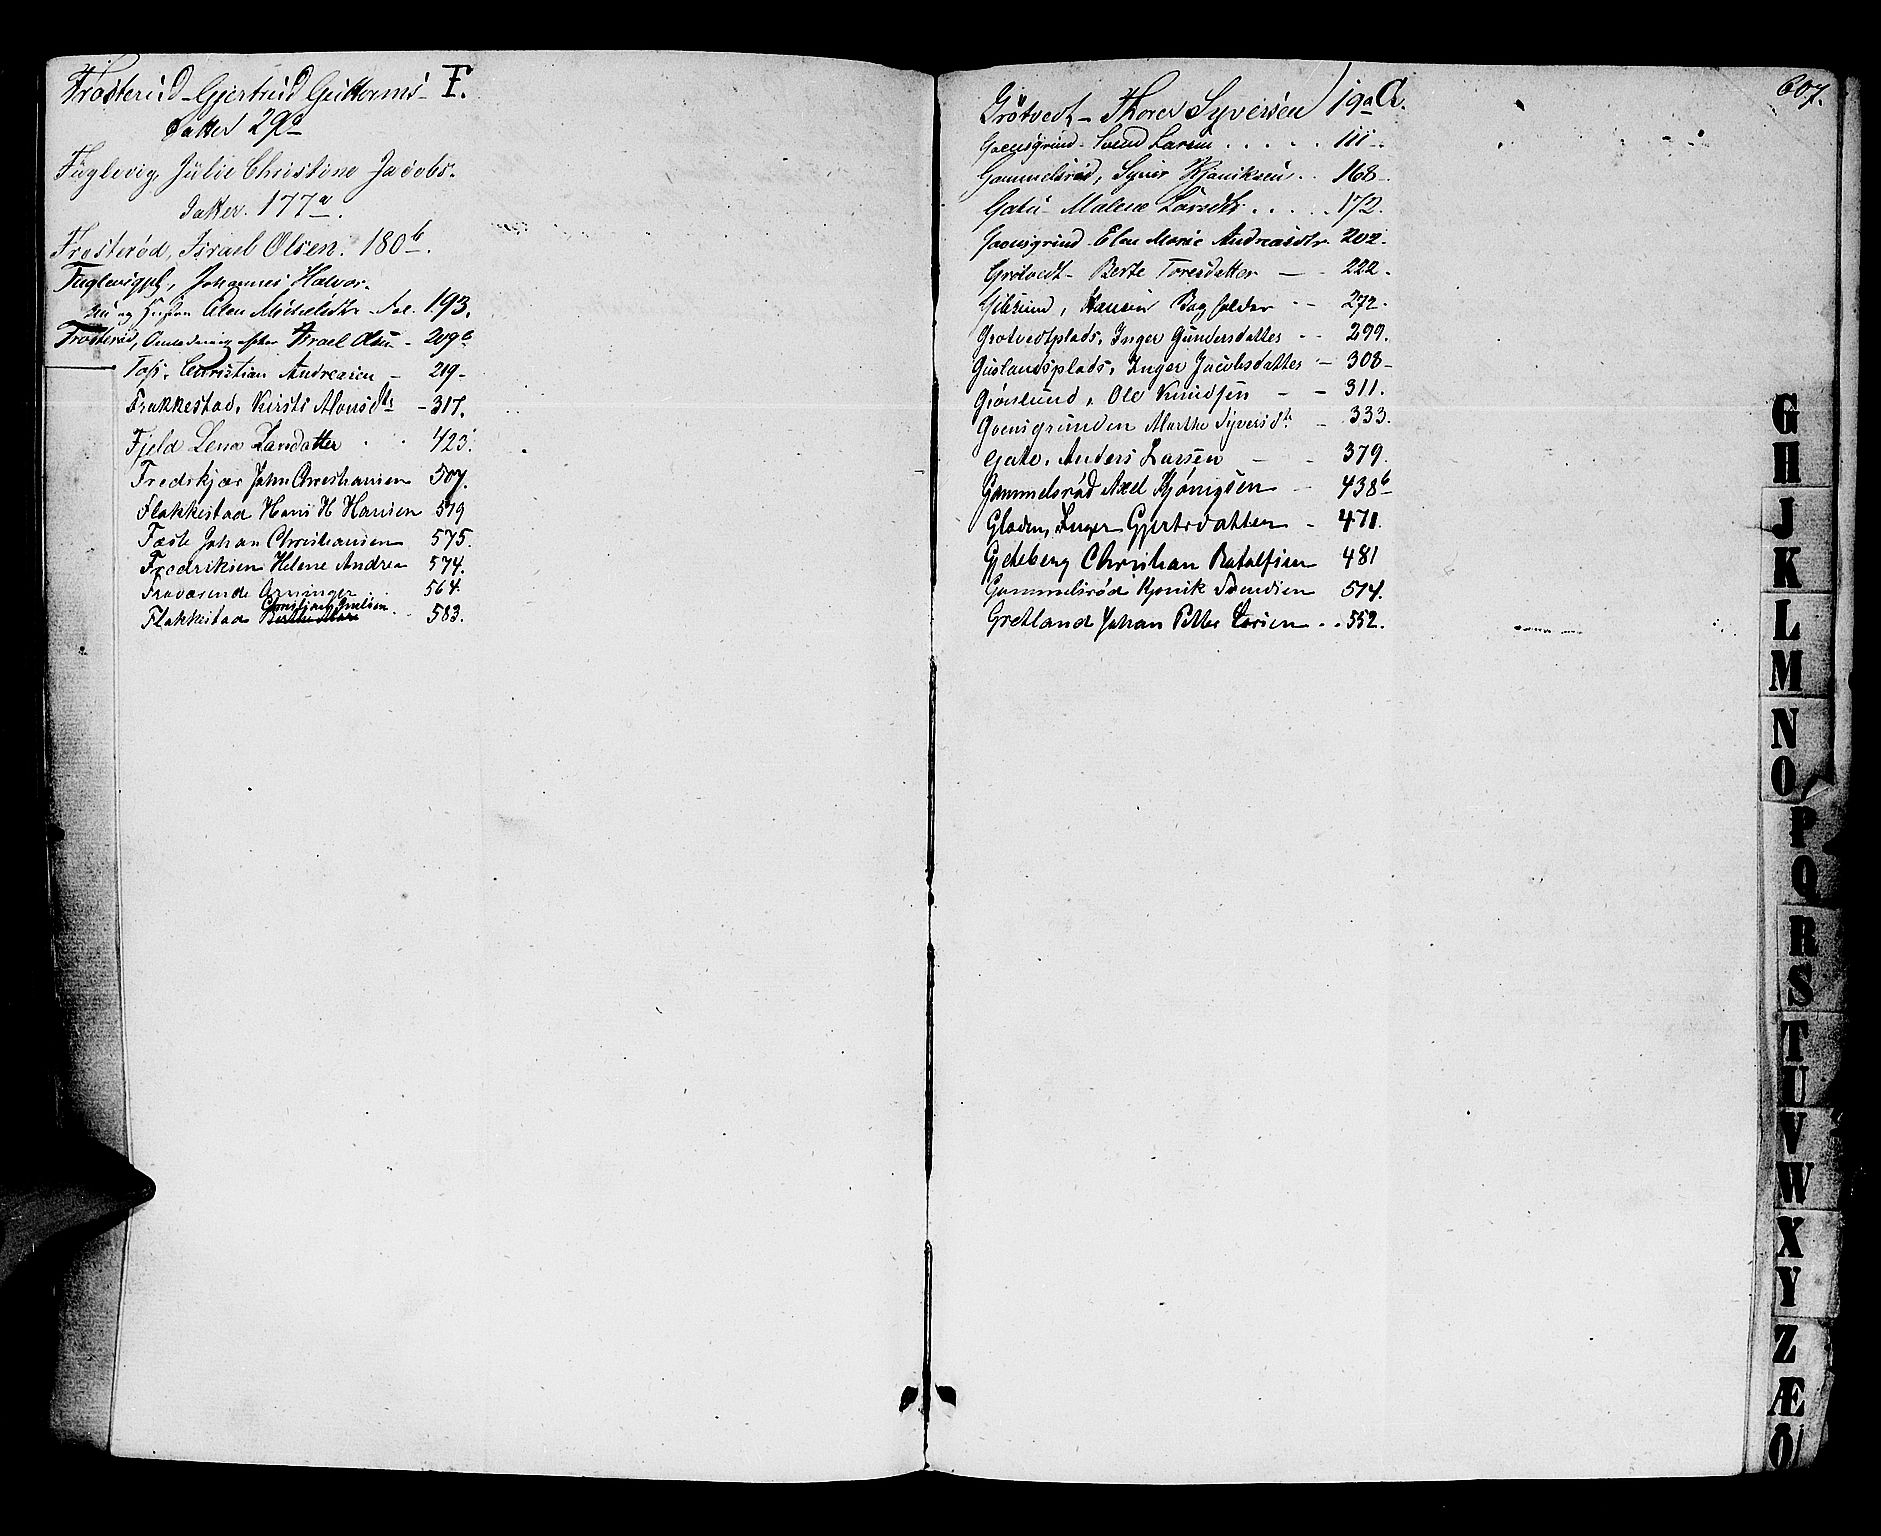 F.
Frosterud Gjertrud Guttorms-
datter 29a
Fuglevig, Julie Christine Jacobs-
datter. 177a.
Frosterød, Israel Olsen. 180b.
Fuglevigpl, Johannes Halvor-
sen og Hustru Elen Michelsdtr. Fol. 193.
Frosterød, efter Israel Olsen - 209b
Christian Andreasen - 219-
Frakkestad, Kirsti Monsdtr - 317.
Fjeld Lena Larsdatter 423.
Fredskjær John Christiansen 507.
Flakkestad Hans H Hansen 519
Fæste Johan Christiansen 575.
Fredriksen Helene Andrea 574.
Fraværende Arvinger 564.
Christiane Emilsen
Flakkestad Berthe Marie 583.
607.
G.
Grøtvedt - Thorer Syversen 19a
Goensgrind - Svend Larsen ..... 111 -
Gammelsrød, Syver Kjøniksen .. 168-
Gatu - Malene Larsdtr ..... 172.
Goensgrind - Elen Marie Andreasdtr 202.
Grøtvedt - Berte Toresdatter - 222.
Gibsund, Hansen Bagholder - 272.
Grotvedtplads, Inger Gundersdatter - 299.
Guslandsplads, Inger Jacobsdatter - 308-
Grønlund, Ole Knudsen - 311.
Goensgrunden Marthe Syversdtr - 333.
Gate, Anders Larsen - 379.
Gammelsrød Axel Kjønigsen - 438b
Gloden, Inger Gjertsdatter - 471.
Gjeteberg Christian Rotolfsen 481
Gammelsrød Kjønik Svendsen 514.
Gretland Johan Petter Larsen .. 552.
G
H
J
K
L
M
N
O
P
Q
R
S
T
U
V
W
X
Y
Z
Æ
Ø